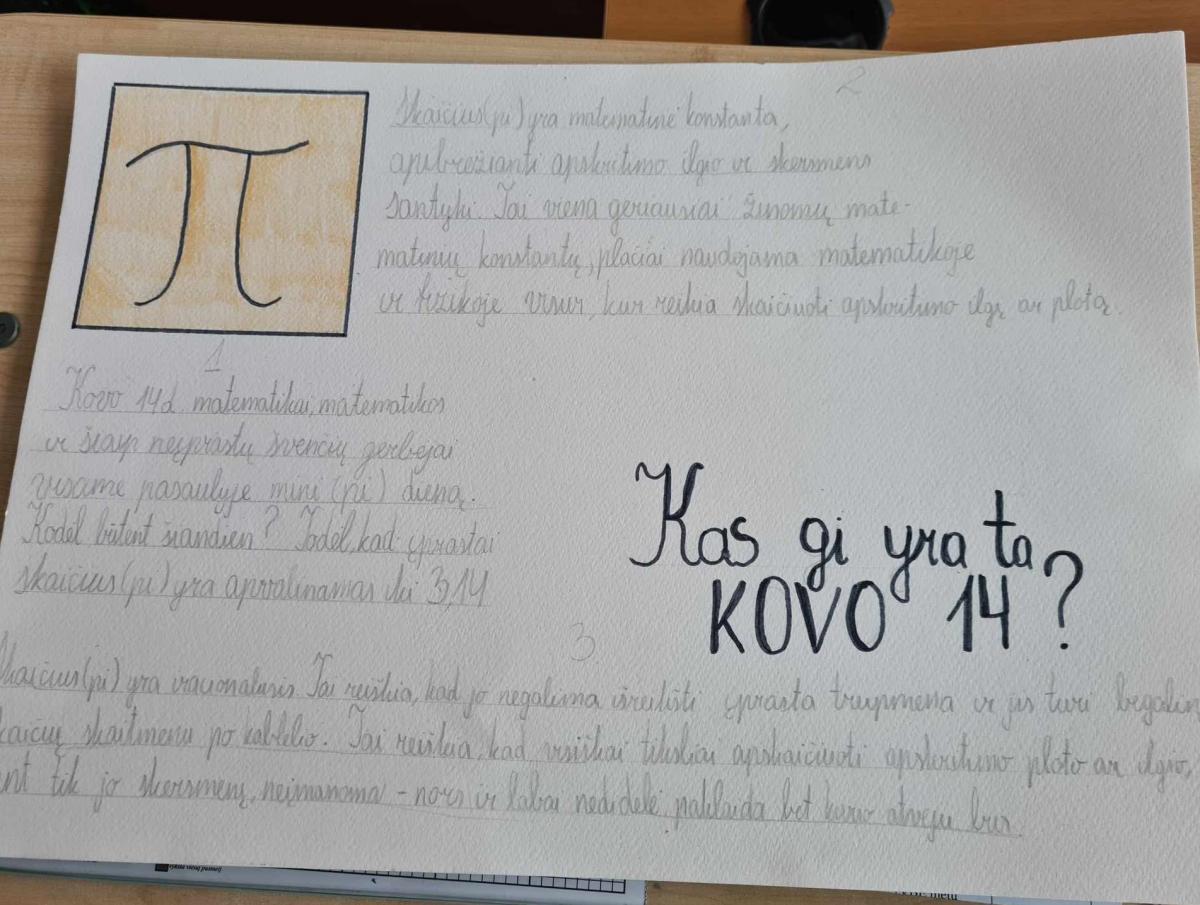 π
2
Skaičius (pi) yra matematinė konstanta,
apibrėžianti apskritimo ilgio ir skersmens
santykį. Tai viena geriausiai žinomų mate-
matinių konstantų, plačiai naudojama matematikoje
ir fizikoje visur, kur reikia skaičiuoti apskritimo ilgį ar plotą.
1
Kovo 14d. matematikai, matematikos
ir šiaip neįprastų švenčių gerbėjai
visame pasaulyje mini (pi) dieną.
Kodėl būtent šiandien? Todėl, kad įprastai
skaičius (pi) yra apvalinamas iki 3,14
Kas gi yra ta
KOVO 14?
3
Skaičius (pi) yra iracionalusis. Tai reiškia, kad jo negalima išreikšti įprasta trupmena ir jis turi begalin
kaičių skaitmenų po kablelio. Tai reiškia, kad visiškai tiksliai apskaičiuoti apskritimo ploto ar ilgio,
nt tik jo skersmenį, neįmanoma - nors ir labai nedidelė paklaida bet kuriuo atveju bus.